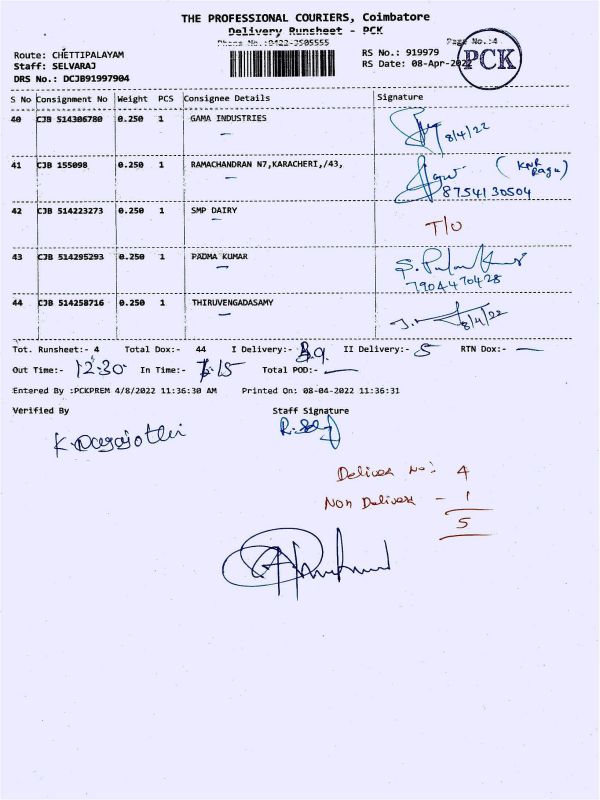 THE PROFESSIONAL COURIERS, Coimbatore
Delivery Runsheet - PCK
Phone No.:0422-2505555
Page No.:4
Route: CHETTIPALAYAM
RS No.: 919979
Staff: SELVARAJ
RS Date: 08-Apr-2022
PCK
DRS No.: DCJB91997904
S No Consignment No Weight PCS Consignee Details Signature
40 CJB 514306780 0.250 1 GAMA INDUSTRIES 8/4/22
41 CJB 155098 0.250 1 RAMACHANDRAN N7,KARACHERI,/43,
8754130504
42 CJB 514223273 0.250 1 SMP DAIRY T/O
43 CJB 514295293 0.250 1 PADMA KUMAR
7904470428
44 CJB 514258716 0.250 1 THIRUVENGADASAMY 8/4/22
Tot. Runsheet:- 4 Total Dox:- 44 I Delivery:- 39 II Delivery:- 5 RTN Dox:- —
Out Time:- 12:30 In Time:- 15 Total POD:- —
Entered By :PCKPREM 4/8/2022 11:36:30 AM Printed On: 08-04-2022 11:36:31
Verified By Staff Signature
Deliver No: 4
Non Deliver - 1
5